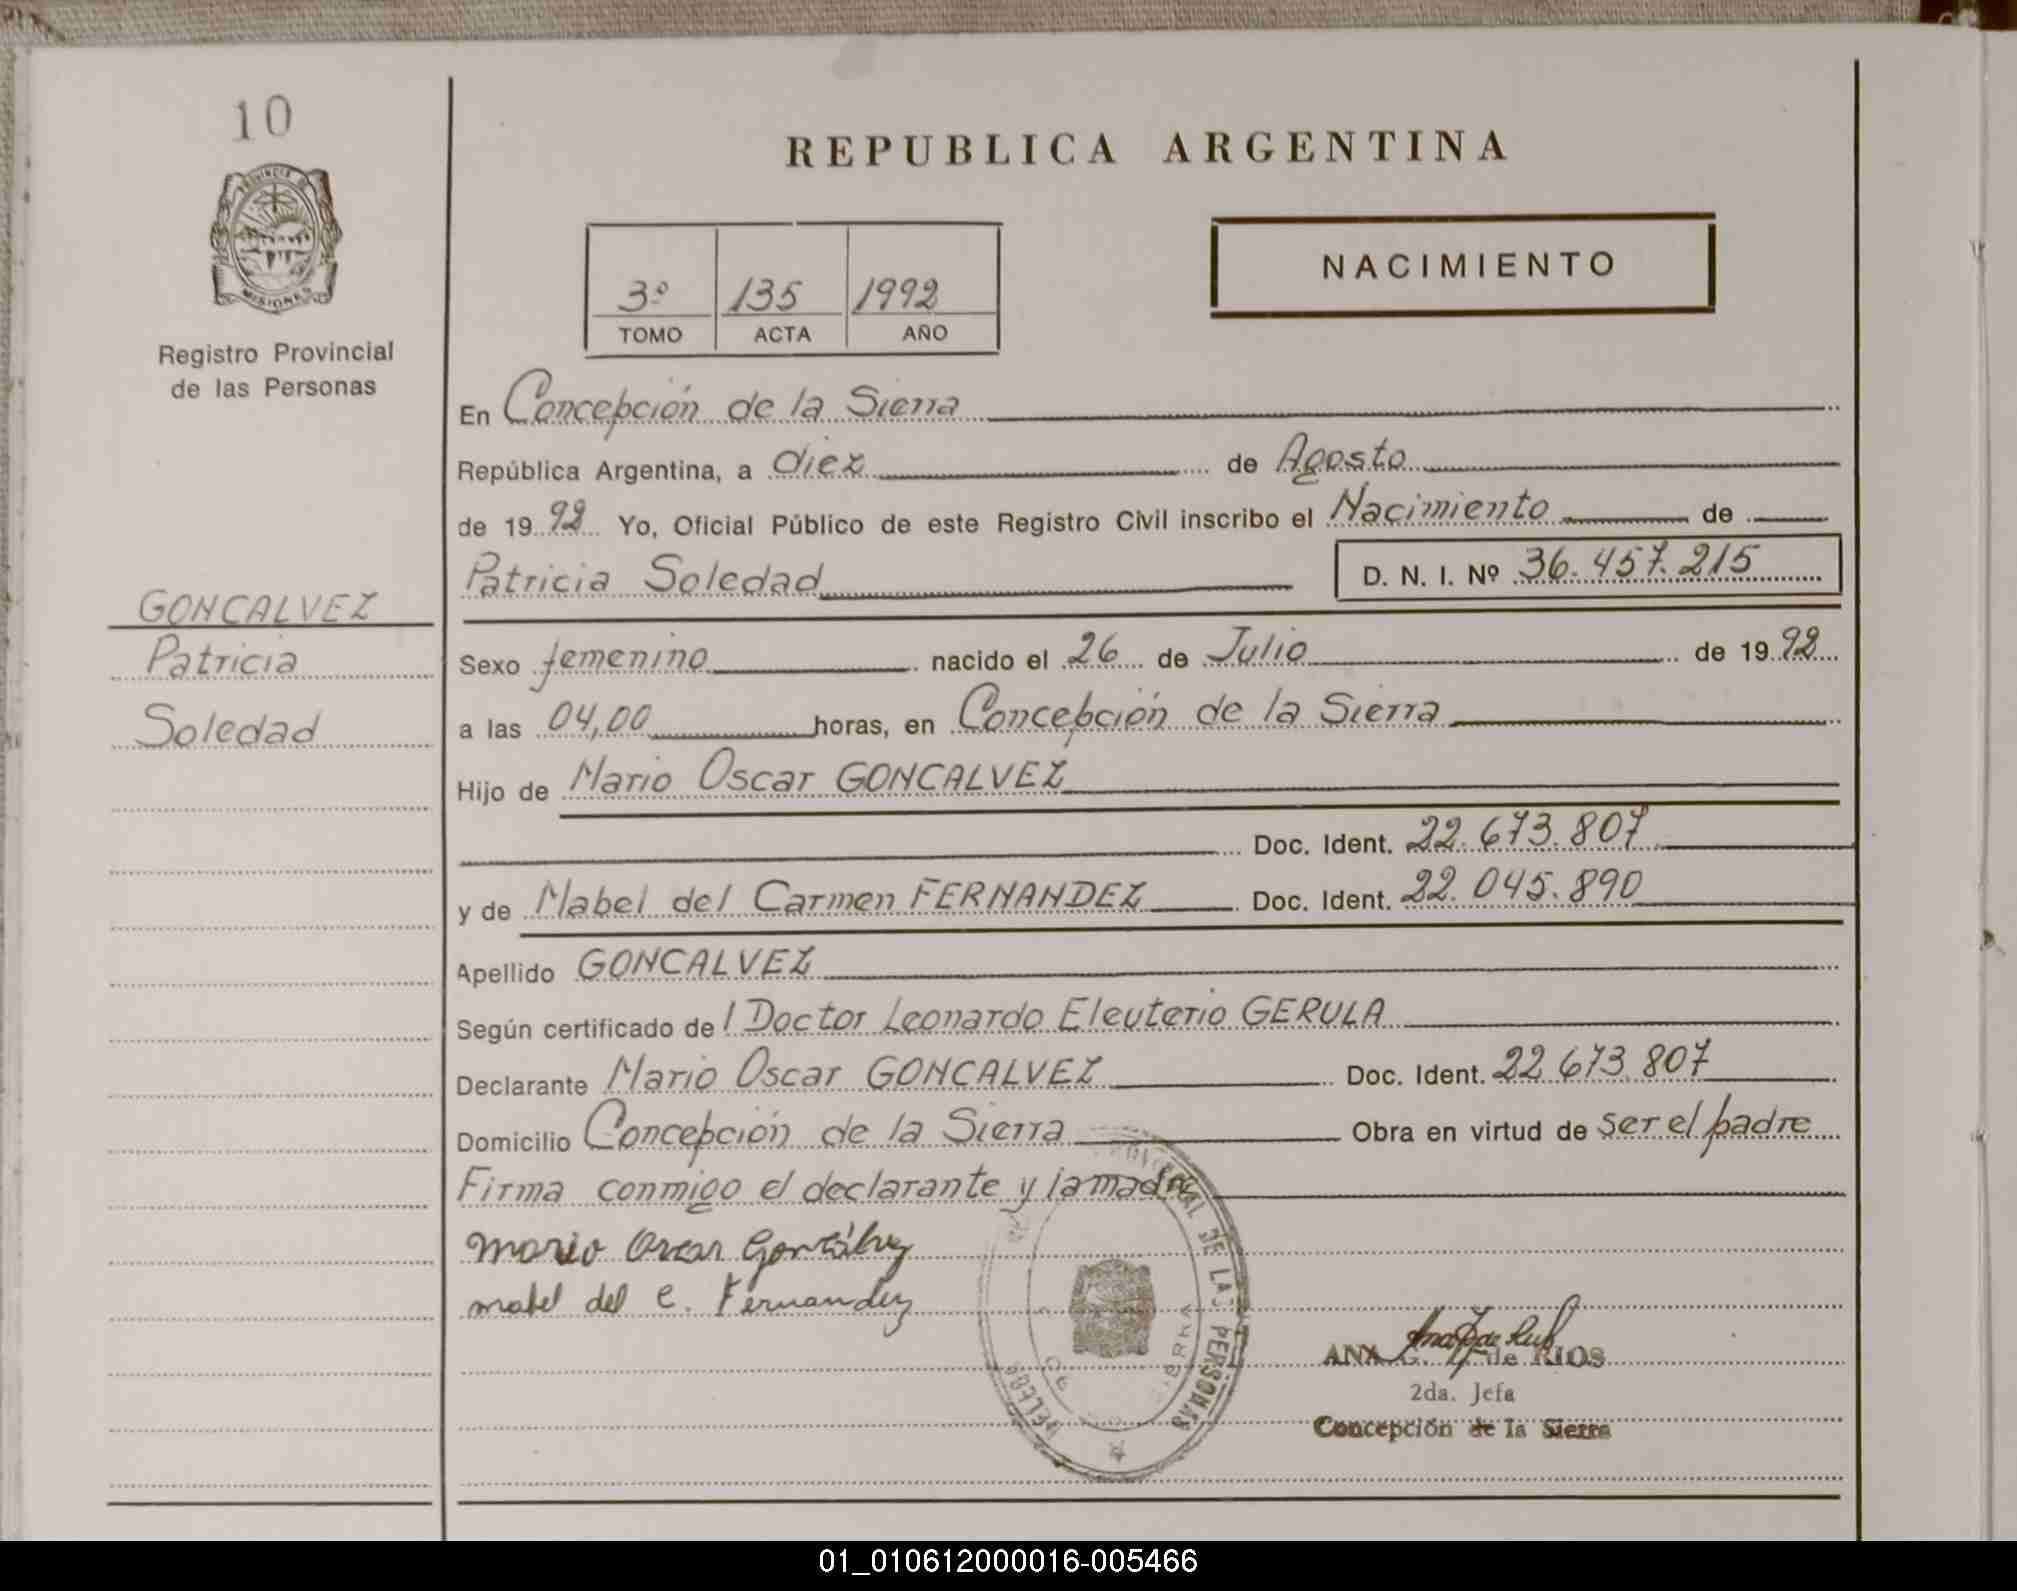 10
PROVINCIA DE
MISIONES
Registro Provincial
de las Personas
GONCALVEZ
Patricia
Soledad
REPUBLICA ARGENTINA
3º 135 1992
TOMO ACTA AÑO
NACIMIENTO
En Concepción de la Sierra
República Argentina, a diez de Agosto
de 1992 Yo, Oficial Público de este Registro Civil inscribo el Nacimiento de
Patricia Soledad D. N. I. Nº 36.457.215
Sexo femenino nacido el 26 de Julio de 1992
a las 04,00 horas, en Concepción de la Sierra
Hijo de Mario Oscar GONCALVEZ
Doc. Ident. 22.673.807
y de Mabel del Carmen FERNANDEZ Doc. Ident. 22.045.890
Apellido GONCALVEZ
Según certificado de l Doctor Leonardo Eleuterio GERULA
Declarante Mario Oscar GONCALVEZ Doc. Ident. 22.673.807
Domicilio Concepción de la Sierra Obra en virtud de ser el padre
Firma conmigo el declarante y la madre
Mario Oscar
mabel del C. Fernandez
DE LAS PERSONAS
ANA G. de RIOS
2da. Jefa
Concepción de la Sierra
01_010612000016-005466